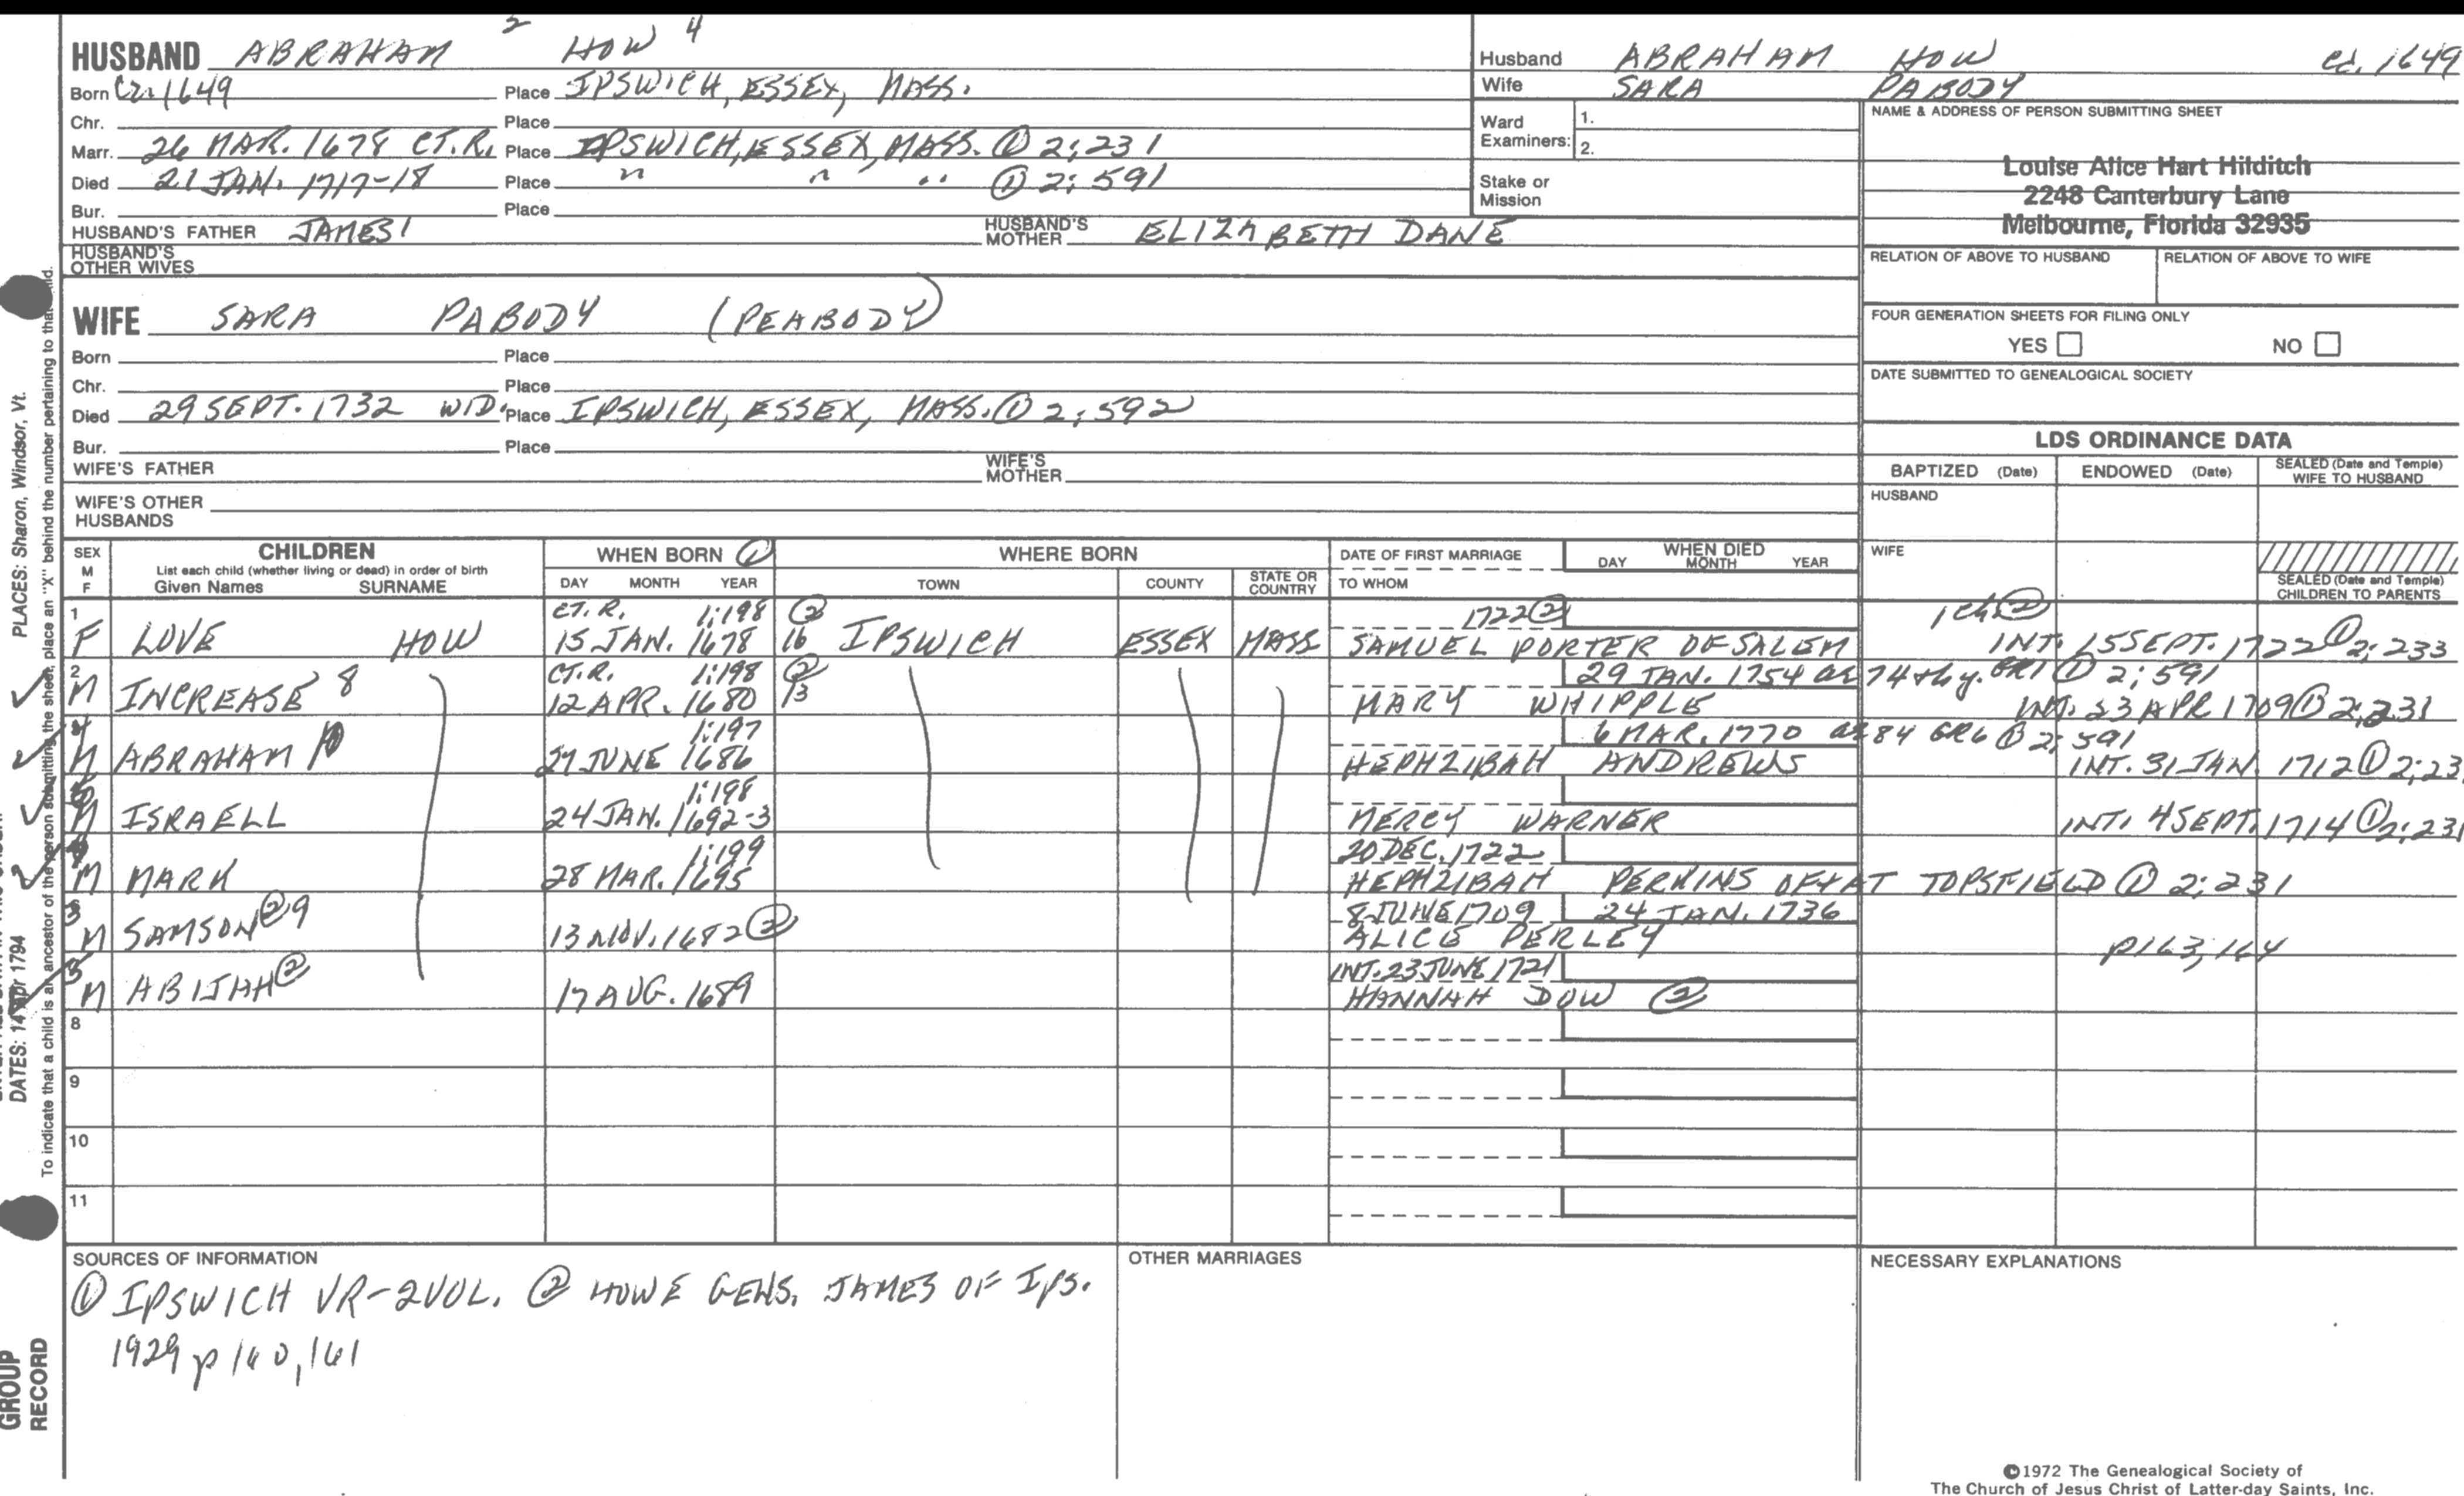 HUSBAND ABRAHAM 2 HOW 4
Born Ca. 1649 Place IPSWICH, ESSEX, MASS.
Chr. Place
Marr. 26 MAR. 1678 CT.R. Place IPSWICH, ESSEX, MASS. ① 2:231
Died 21 JAN. 1717-18 Place " " " ① 2:591
Bur. Place
HUSBAND'S FATHER JAMES1 HUSBAND'S MOTHER ELIZABETH DANE
HUSBAND'S OTHER WIVES
WIFE SARA PABODY (PEABODY)
Born Place
Chr. Place
Died 29 SEPT. 1732 WID. Place IPSWICH, ESSEX, MASS. ① 2:592
Bur. Place
WIFE'S FATHER WIFE'S MOTHER
WIFE'S OTHER HUSBANDS
Husband ABRAHAM HOW ca. 1649
Wife SARA PABODY
Ward Examiners: 1.
2.
Stake or Mission
NAME & ADDRESS OF PERSON SUBMITTING SHEET
Louise Alice Hart Hilditch
2248 Canterbury Lane
Melbourne, Florida 32935
RELATION OF ABOVE TO HUSBAND RELATION OF ABOVE TO WIFE
FOUR GENERATION SHEETS FOR FILING ONLY
YES NO
DATE SUBMITTED TO GENEALOGICAL SOCIETY
LDS ORDINANCE DATA
BAPTIZED (Date) ENDOWED (Date) SEALED (Date and Temple) WIFE TO HUSBAND
HUSBAND
WIFE
SEALED (Date and Temple) CHILDREN TO PARENTS
SEX M F CHILDREN WHEN BORN ① WHERE BORN DATE OF FIRST MARRIAGE WHEN DIED
List each child (whether living or dead) in order of birth
Given Names SURNAME DAY MONTH YEAR TOWN COUNTY STATE OR COUNTRY TO WHOM DAY MONTH YEAR
1 CT.R. 1:198 ② 1722② 1 ch②
F LOVE HOW 15 JAN. 1678 16 IPSWICH ESSEX MASS SAMUEL PORTER OF SALEM INT. 15 SEPT. 1722 ① 2:233
2 CT.R. 1:198 ② 29 JAN. 1754 ae 74th y. GR1 ① 2:591
M INCREASE 8 12 APR. 1680 13 MARY WHIPPLE INT. 23 APR 1709 ① 2:231
4 1:197 6 MAR. 1770 ae 84 GR6 ① 2:591
M ABRAHAM 10 27 JUNE 1686 HEPHZIBAH ANDREWS INT. 31 JAN. 1712 ① 2:23
1:198
M ISRAELL 24 JAN. 1692-3 MERCY WARNER INT. 4 SEPT. 1714 ① 2:231
1:199 20 DEC. 1722
M MARK 28 MAR. 1695 HEPHZIBAH PERKINS OF & AT TOPSFIELD ① 2:231
3 8 JUNE 1709 24 JAN. 1736
M SAMSON② 9 13 NOV. 1682② ALICE PERLEY p163, 164
5 INT. 23 JUNE 1721
M ABIJAH② 17 AUG. 1689 HANNAH DOW ②
8
9
10
11
SOURCES OF INFORMATION
① IPSWICH VR-2VOL. ② HOWE GENS. JAMES OF IPS.
1929 p 160, 161
OTHER MARRIAGES
NECESSARY EXPLANATIONS
©1972 The Genealogical Society of
The Church of Jesus Christ of Latter-day Saints, Inc.
PLACES: Sharon, Windsor, Vt.
DATES: 14 Apr 1794
To indicate that a child is an ancestor of the person submitting the sheet, place an "X" behind the number pertaining to that child.
GROUP
RECORD